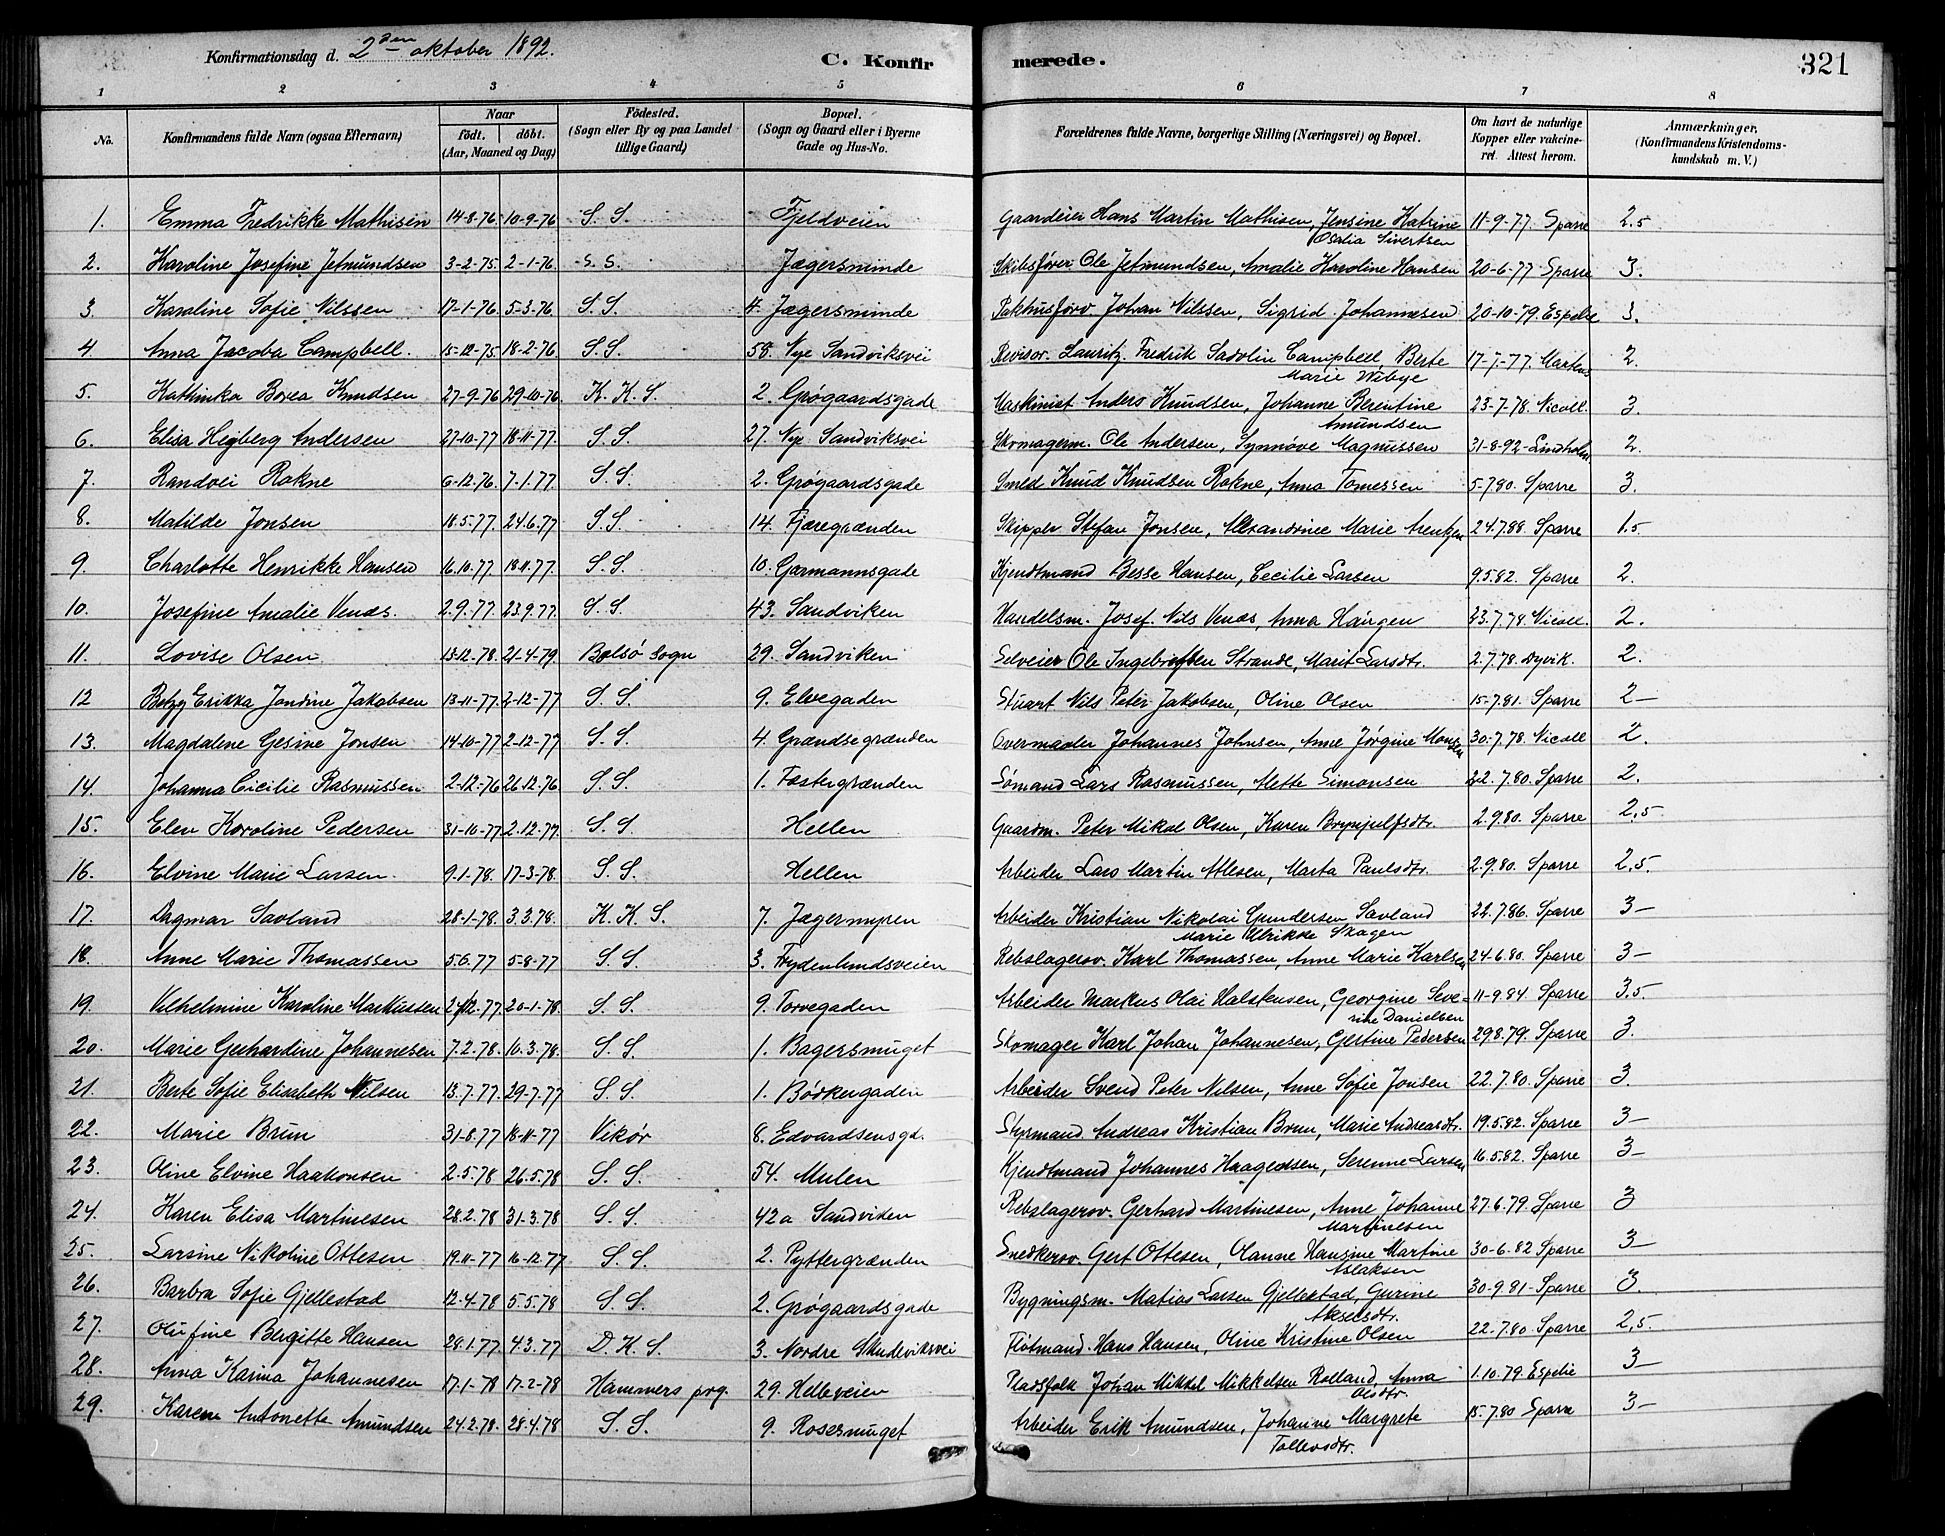 Konfirmationsdag d. 2den oktober 1892.
C. Konfirmerede.
321
1 2 3 4 5 6 7 8
No. Konfirmandens fulde Navn (ogsaa Efternavn) Naar født. døbt. (Aar, Maaned og Dag) Fødested. (Sogn eller By og paa Landet tillige Gaard) Bopæl. (Sogn og Gaard eller i Byerne Gade og Hus-No. Forældrenes fulde Navne, borgerlige Stilling (Næringsvei) og Bopæl. Om havt de naturlige Kopper eller vakcineret. Attest herom. Anmærkninger. (Konfirmandens Kristendomskundskab m. V.)
1. Emma Fredrikke Mathisen 14-8-76 10-9-76 S. S. Fjeldveien Gaardeier Hans Martin Mathisen, Jensine Katrine 11-9-77 Sparre 2,5
Osalia Sivertsen
2. Karoline Josefine Jetmundsen 3-2-75 2-1-76 S. S. Jægersminde Skibsfører Ole Jetmundsen, Amalie Karoline Hansen 20-6-77 Sparre 3.
3. Karoline Sofie Nilssen 17-1-76 5-3-76 S. S. 4. Jægersminde Pakhusforv. Johan Nilssen, Sigrid Johannesen 20-10-79. Espelie 3.
4. Anna Jacoba Campbell. 15-12-75 18-2-76 S. S. 58. Nye Sandviksvei Revisor. Lauritz Fredrik Sadolin Campbell, Berte 17-7-77. Martens 2.
Marie Wibye
5. Kathinka Borea Knudsen 27-9-76 29-10-76. K. K. S. 2. Grøgaardsgade Maskinist Anders Knudsen, Johanne Berentine 23-7-78. Nicoll. 3.
Amundsen
6. Elisa Hegberg Andersen 27-10-77 18-11-77. S. S. 27. Nye Sandviksvei Skomagerm. Ole Andersen, Synnøve Magnussen 31-8-92-Lindholm. 2.
7. Randvei Rokne 6-12.76. 7-1.77. S. S. 2. Grøgaardsgade Smed Knud Knudsen Rokne, Anna Tomessen 5-7.80. Sparre 3.
8. Matilde Jonsen 18.5-77. 24.6.77 S. S. 14. Fjæregrænden Skipper Stefan Jonsen, Alexandrinee Marie 24.7.88. Sparre 1.5
9. Charlotte Henrikke Hansen 16.10.77. 18.11.77. S. S. 10. Garmannsgade Kjendtmand Besse Hansen, Cecilie Larsen 9.5.82. Sparre 2.
10. Josefine Amalie Venæs. 2.9.77. 23.9.77. S. S. 43. Sandviken Handelsm. Josef. Nils Venæs, Anna 23.7.78. Nicoll. 2.
11. Lovise Olsen 13-12.78. 21-4.79. Bolsø sogn 29. Sandviken Selveier Ole Ingebrigtsen Strande, Marit Larsdtr. 2.7.78. Dyvik. 2.
12 Betzy Erikka Jondine Jakobsen 13-11-77. 2-12-77 S. S. 9. Elvegaden Stuart Nils Peter Jakobsen, Oline Olsen 15-7.81. Sparre 2-
13. Magdalene Gesine Jonsen 14-10-77 2-12-77 S. S. 4. Grændsegrænden Overmaaler Johannes Johnsen, Anne Jørgine Monsen 30-7.78. Nicoll 2.
14. Johanna Cicilie Rasmussen 2-12-76 26.12.76 S. S. 1. Fæstergrænden Sømand Lars Rasmussen, Mette Simonsen 22.7.80. Sparre 2.
15. Elen Karoline Pedersen 31-10-77 2.12-77. S. S. Hellen Gaardm. Peter Mikal Olsen, Karen Brynjulfsdtr. 2.9.80. Sparre 2,5.
16. Elvine Marie Larsen. 9.1-78. 17-3-78. S. S. Hellen Arbeider Lars Martin Atlesen, Marta Paulsdtr. 2.9.80. Sparre 2,5.
17. Dagmar Savland 28-1-78. 3.3.78. K. K. S. 7. Jægermyren Arbeider Kristian Nikolai Gundersen Savland 22.7.86. Sparre 3-
Marie Ulrikke Skagen
18. Anne Marie Thomassen 5.6.77 5-8-77 S. S. 3. Frydenlundsveien Rebslagersv. Karl Thomassen, Anne Marie Karlsen 24-6.80. Sparre 3-
19. Vilhelmine Karoline Markussen 24/12.77. 20-1-78. S. S. 9. Torvegaden Arbeider Markus Olai Halstensen, Georgine Seve- 11-9.84. Sparre 3.5.
rine Danielsen
20. Marie Gerhardine Johannesen 7.2.78. 10.3.78. S. S. 1. Bagersmuget Skomager Karl Johan Johannesen, Gestine Pedersen 29.8.79. Sparre 3.
21. Berte Sofie Elisabeth Nilsen 13.7.77. 29-7.77 S. S. 1. Bødkergaden Arbeider Svend Peter Nilsen, Anne Sofie Jonsen 22.7.80. Sparre 3.
22. Marie Brun 31-8.77 18-11-77 Vikør 8. Edvardsensgd. Styrmand Andreas Kristian Brun, Marie Andreasdtr. 19.5.82. Sparre 3-
23. Oline Elvine Haakonsen 2.5.78 26.5.78 S. S. 54. Mulen Kjendtmand Johannes Haagensen, Serenne Larsen 16.5.82. Sparre 3-
24. Karen Elisa Martinesen 28.2.78 31-3.78 S. S. 42a Sandviken Rebslagersv. Gerhard Martinesen, Anne Johanne 27-6.79. Sparre 3
Martinesen
25. Larsine Nikoline Ottesen 19.11-77 16-12.77 S. S. 2. Pyttergrænden Snedkersv. Gert Ottesen, Olanne Hansine Martine 30-6.82 Sparre 3-
Aslaksen
26. Barbra Sofie Gjellestad 12-4.78 5.5.78 S. S. 2. Grøgaardsgade Bygningsm. Matias Larsen Gjellestad, Gurine 30-9.81-Sparre 3.
Akselsdtr.
27. Olufine Bergitte Hansen 28.1.77 4.3.77 D. K. S. 3. Nordre Skudeviksvei Fløtmand. Hans Hansen, Oline Kristine Olsen 22.7.80 Sparre 2,5.
28. Anna Karina Johannesen 17.1-78 17-2-78 Hammers prg. 29. Helleveien Pladsfolk Johan Mikkel Mikkelsen Rolland, Anna 1.10.79 Espelie 3-
Olsdtr.
29. Karen Antonette Amundsen 24.2.78. 28.4.78 S. S. 9. Rosesmuget Arbeider Erik Amundsen, Johanne Margrete 15.7.80 Sparre 3-
Tollevsdtr.